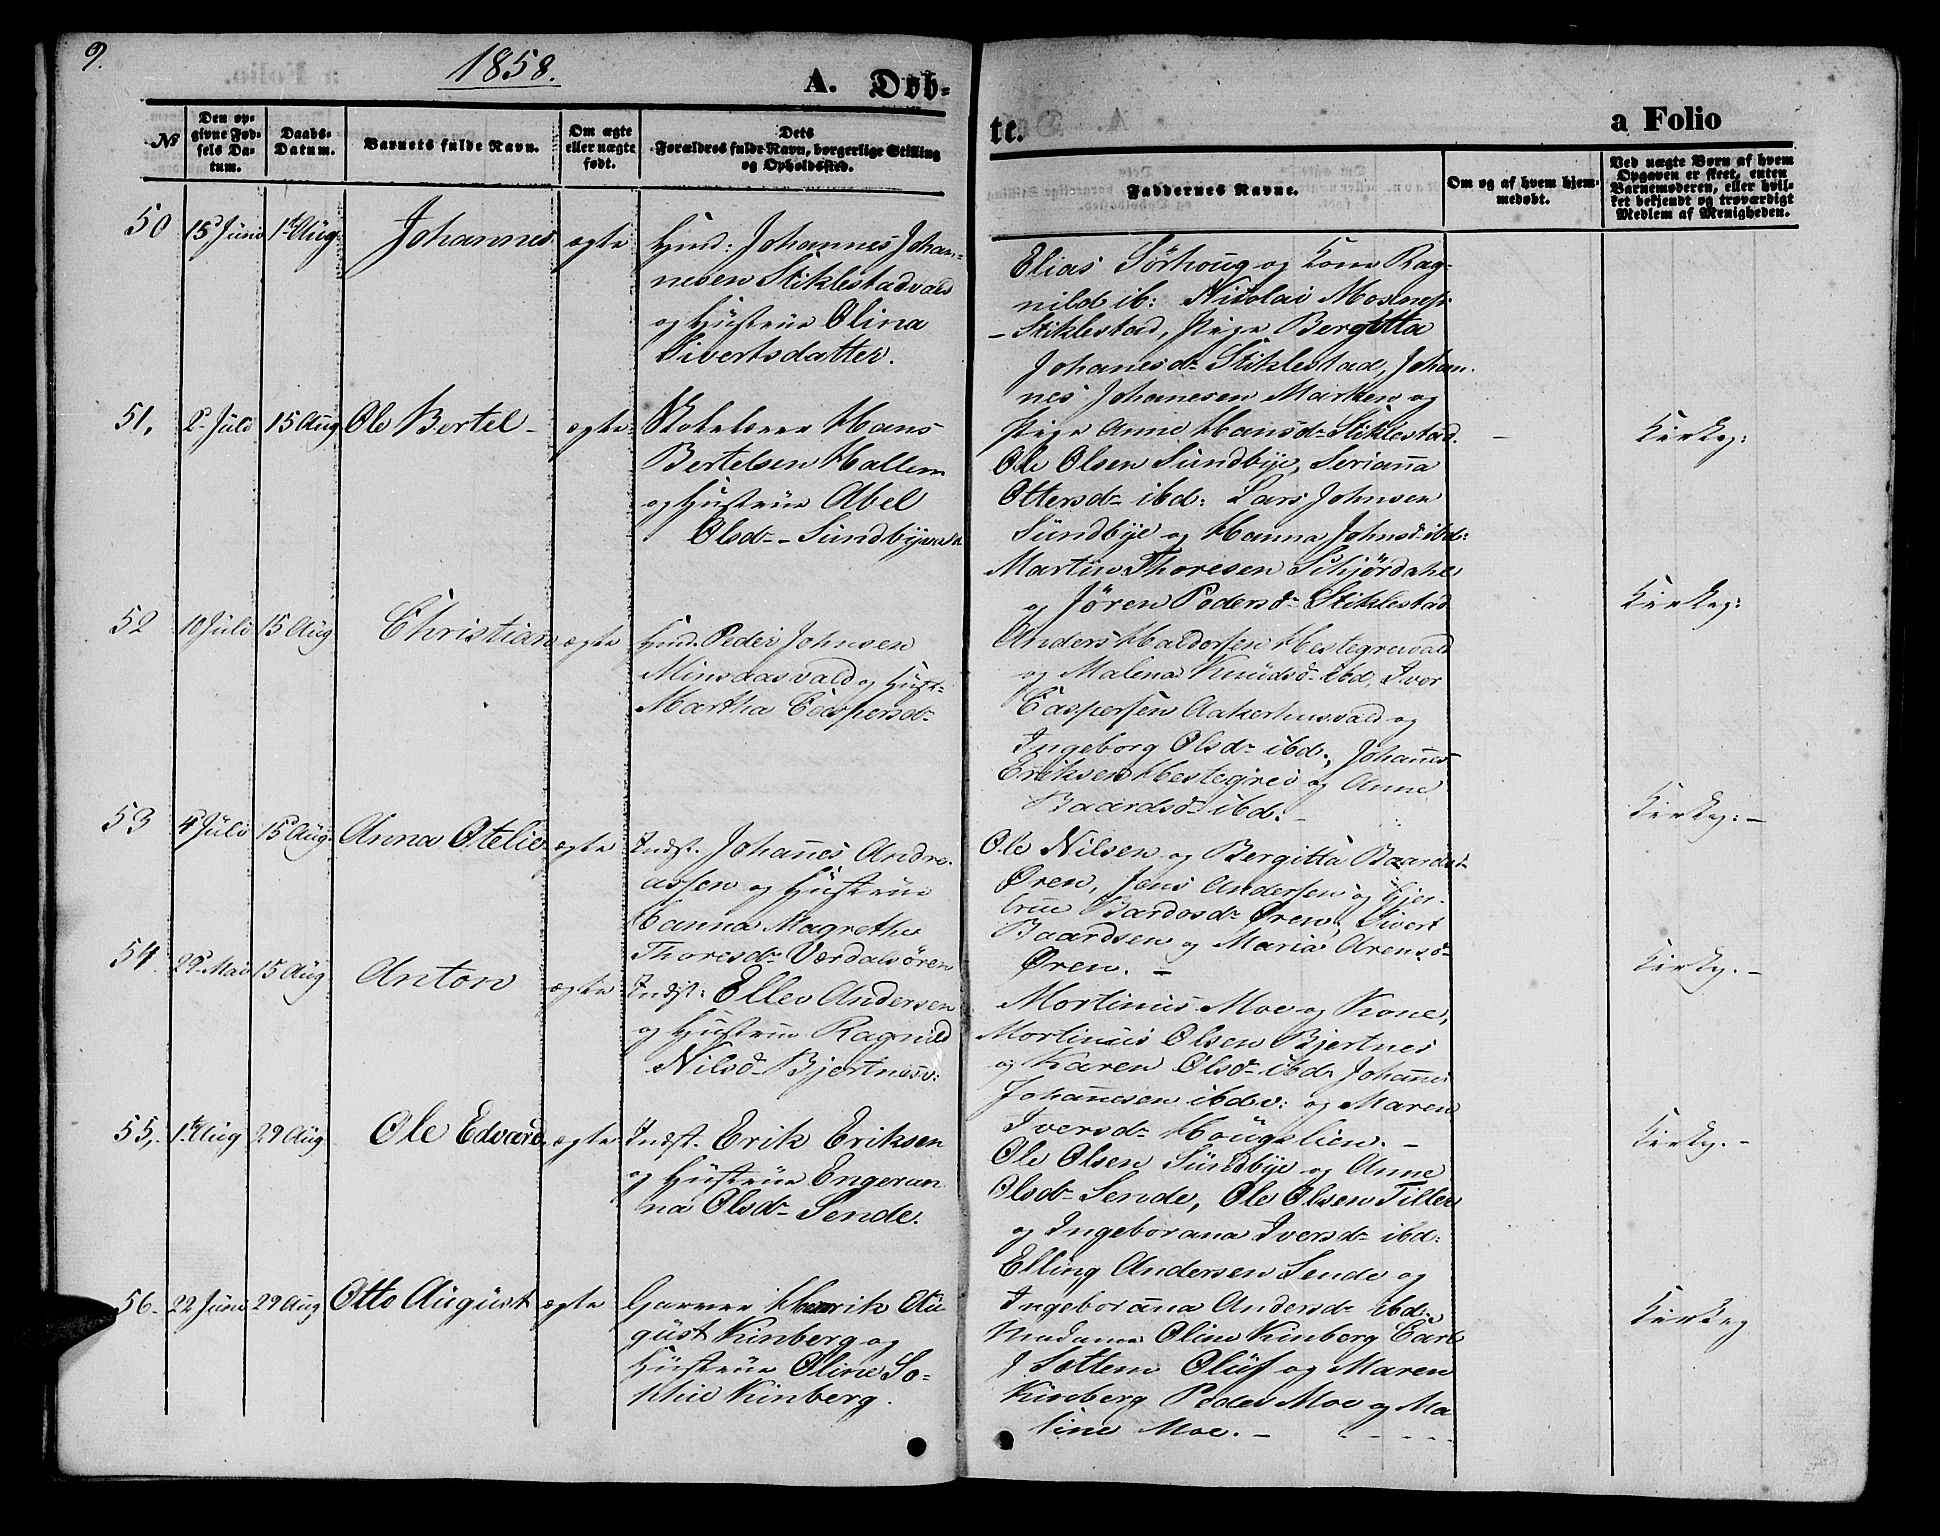 9.
1858.
A. Døb-
№
Den op-
givne Fød-
sels Da-
tum.
Daabs-
Datum.
Barnets fulde Navn.
Om ægte
eller uægte
født.
Dets
Forældres fulde Navn, borgerlige Stilling
og Opholdssted.
50 15 Juni 1st Aug Johannes ægte
Huusd: Johannes Johan-
nesen Stiklestadvald
og Hustrue Olina
Sivertsdatter.
51, 2d Juli 15 Aug Ole Bertel - ægte
Skolelærer Hans
Bertelsen Hallem
og Hustrue Abel
Olsdr - Sundbye
52 10 Juli 15 Aug Christian ægte
Huusd. Peder Johnsen
Minsaasvald og Hust:
Martha Caspersdr
53 4 Juli 15 Aug. Anna Otelie ægte
Indst. Johannes Andre-
assen og Hustrue
Hanna Magrethe
Thoresdr Værdalsøren
54. 29 Mai 15 Aug Anton ægte
Indst: Ellev Andersen
og Hustrue Ragnild
Nilsd Bjertnesv:
55,. 1st Aug 29 Aug. Ole Edvard ægte
Indst. Erik Eriksen
og Hustrue Engeran
na Olsdr Sende.
56. 22 Juni 29 Aug Otto August ægte
Garver Henrik Au
gust Kinberg og
Hustrue Oline So-
phie Kinberg.
te.
a Folio
Faddernes Navne.
Om og af hvem hjem-
medøbt.
Ved uægte Børn af hvem
Opgaven er skeet, enten
Barnemoderen, eller hvil-
ket bekjendt og troværdigt
Medlem af Menigheden.
Elias Sörhoug og Kone Rag-
nild ib: Nicolai Mosnes
- Stiklestad, Pige Bergitta
Johanesdr Stiklestad, Johan
nes Johanesen Marken og
Pige Anne Hansdr Stiklestad.
Ole Olsen Sundbye, Serianna
Ottersdr ibd: Lars Johnsen
Sundbye og Hanna Johnsd ibd:
Martin Thoresen Schjördahl
og Jören Pedersdr Stiklestad
Anders Haldorsen Hestegreivald
og Malena Knudsd ibd, Iver
Caspersen Aakerhusvald og
Ingeborg Olsdr ibd, Johannes
Eriksen Hestegrei og Anne
Baardsd ibd. -
Ole Nilsen og Bergitta Baardsd
Øren, Jens Andersen og Gjer-
true Baardsdr Øren, Sivert
Baardsen og Maria Arensd
Øren. -
Mortinus Moe og Kone,
Mortinus Olsen Bjertnes
og Karen Olsdr ibd, Johannes
Johannesen ibdv: og Maren
Iversdr Hougslien. -
Ole Olsen Sundbye og Anne
Olsdr Sende, Ole Olsen Tiller
og Ingeborana Iversdr ibd:
Elling Andersen Sende og
Ingeborana Andersdr ibd.
Madame Oline Kinberg Carl
J Sottem Oluf og Maren
Kinberg Peder Moe og Ma
line Moe. -
-
Kirkeg:
Kirkeg:
Kirkg: -
Kirkg. -
Kirkg. -
Kirkeg